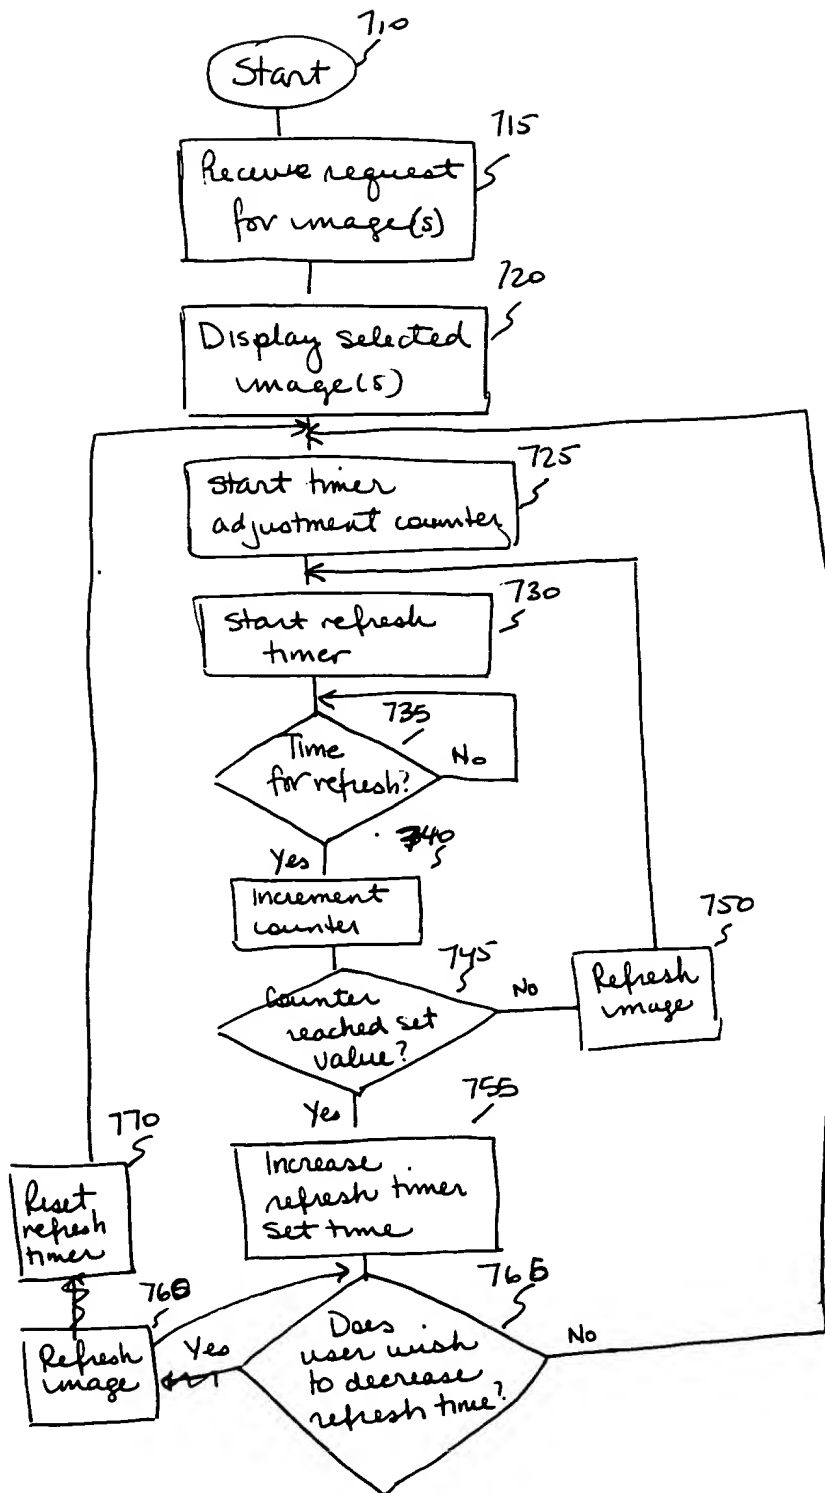 710
Start
715
Receive request
for image(s)
720
Display selected
image(s)
725
Start timer
adjustment counter
730
Start refresh
timer
735
Time
for refresh?
No
Yes
740
Increment
counter
745
Counter
reached set
value?
No
750
Refresh
image
Yes
755
Increase
refresh timer
set time
770
Reset
refresh
timer
Refresh
image
Yes
Does
user wish
to decrease
refresh time?
No